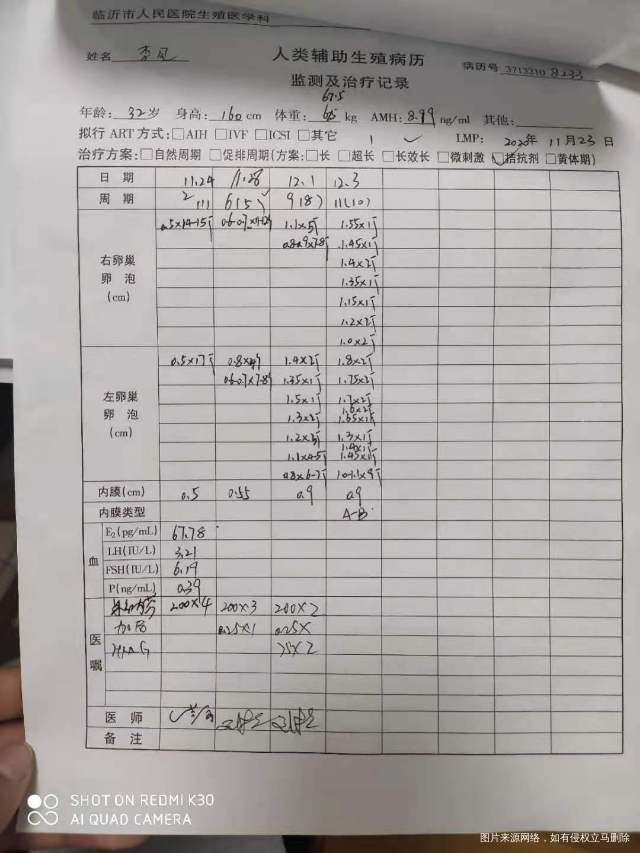 临沂市人民医院生殖医学科
姓名 李 人类辅助生殖病历 病历号 3713210 8233
监测及治疗记录
67.5
年龄: 32岁 身高: 160cm 体重: kg AMH: 8.99 ng/ml 其他:
拟行ART方式: □AIH □IVF □ICSI □其它 1 ✓ LMP: 2020年11月23日
治疗方案: □自然周期 □促排周期(方案: □长 □超长 □长效长 □微刺激 ☑拮抗剂 □黄体期)
日期 11.24 11.28 12.1 12.3
周期 2 6(5) 9(8) 11(10)
右卵巢卵泡(cm) 0.5×14-15个 1.1×5个 1.55×1个
0.8-0.9×7-8个 1.45×1个
1.4×2个
1.35×1个
1.15×1个
1.2×3个
1.0×2个
左卵巢卵泡(cm) 0.5×17个 0.8×4个 1.4×3个 1.8×2个
0.6-0.7×7-8个 1.35×1个 1.75×3个
1.5×1个 1.7×2个
1.6×2个
1.3×3个 1.65×1个
1.2×3个 1.3×1个
1.4×1个
1.1×4-5个 1.45×1个
0.8×6-7个 1.0-1.1×9个
内膜(cm) 0.5 0.55 0.9 0.9
内膜类型 A-B
血 E₂(pg/mL) 67.78
LH(IU/L) 3.21
FSH(IU/L) 6.19
P(ng/mL) 0.39
医嘱 200×4 200×3 200×2
0.25×1 0.25×
HMG 75×2
医师
备注
SHOT ON REDMI K30
AI QUAD CAMERA
图片来源网络,如有侵权立马删除